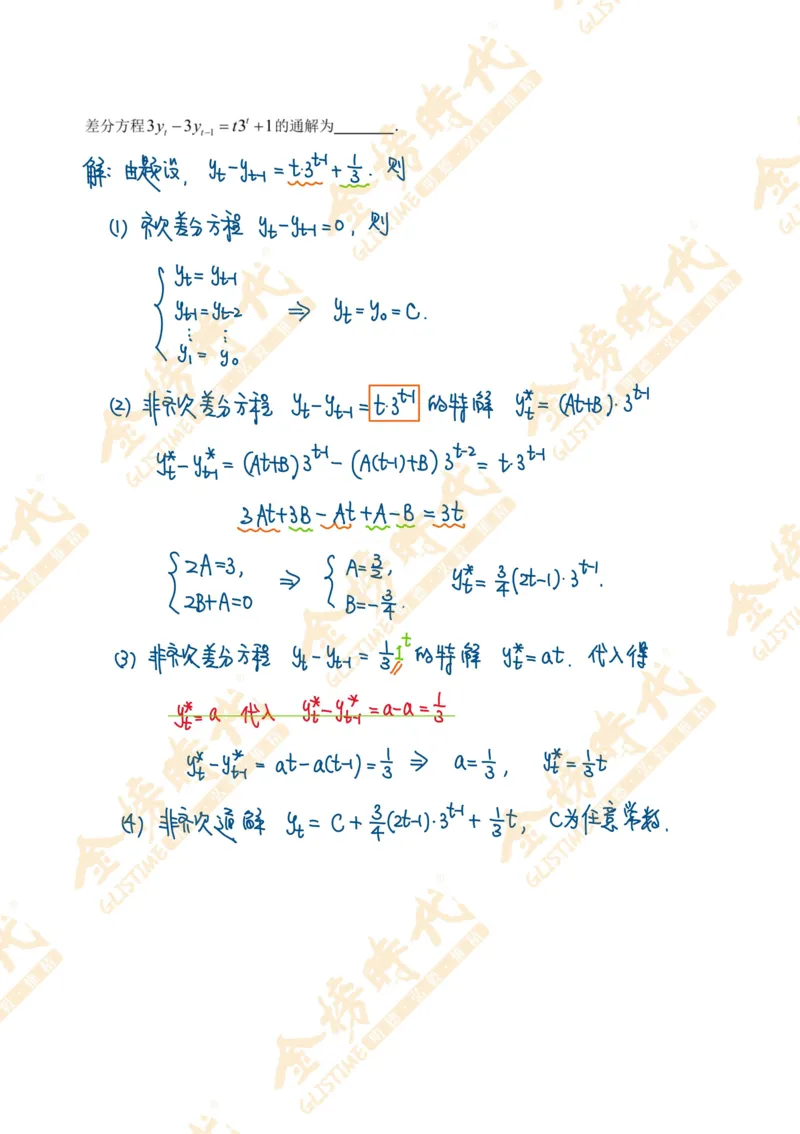 差分方程3yₜ −3yₜ₋₁ = t3ᵗ +1的通解为________.
解: 由题设, yₜ-yₜ₋₁ = t·3ᵗ⁻¹ + 1/3. 则
(1) 齐次差分方程 yₜ-yₜ₋₁=0, 则
{ yₜ= yₜ₋₁
yₜ₋₁=yₜ₋₂ ⇒ yₜ=y₀=C.
⋮ ⋮
y₁= y₀
(2) 非齐次差分方程 yₜ-yₜ₋₁= t·3ᵗ⁻¹ 的特解 yₜ*= (At+B)·3ᵗ⁻¹
yₜ*-yₜ₋₁*= (At+B)3ᵗ⁻¹- (A(t-1)+B)3ᵗ⁻²= t·3ᵗ⁻¹
3At+3B-At+A-B=3t
{ 2A=3, ⇒ { A=3/2, yₜ*= 3/4(2t-1)·3ᵗ⁻¹.
2B+A=0 B=-3/4.
(3) 非齐次差分方程 yₜ-yₜ₋₁= 1/3 1ᵗ 的特解 yₜ*=at. 代入得
yₜ*=a 代入 yₜ*-yₜ₋₁*=a-a=1/3
yₜ*-yₜ₋₁*= at-a(t-1)=1/3 ⇒ a=1/3, yₜ*=1/3t
(4) 非齐次通解 yₜ= C+3/4(2t-1)·3ᵗ⁻¹+1/3t, C为任意常数.
金榜時代
GLISTIME